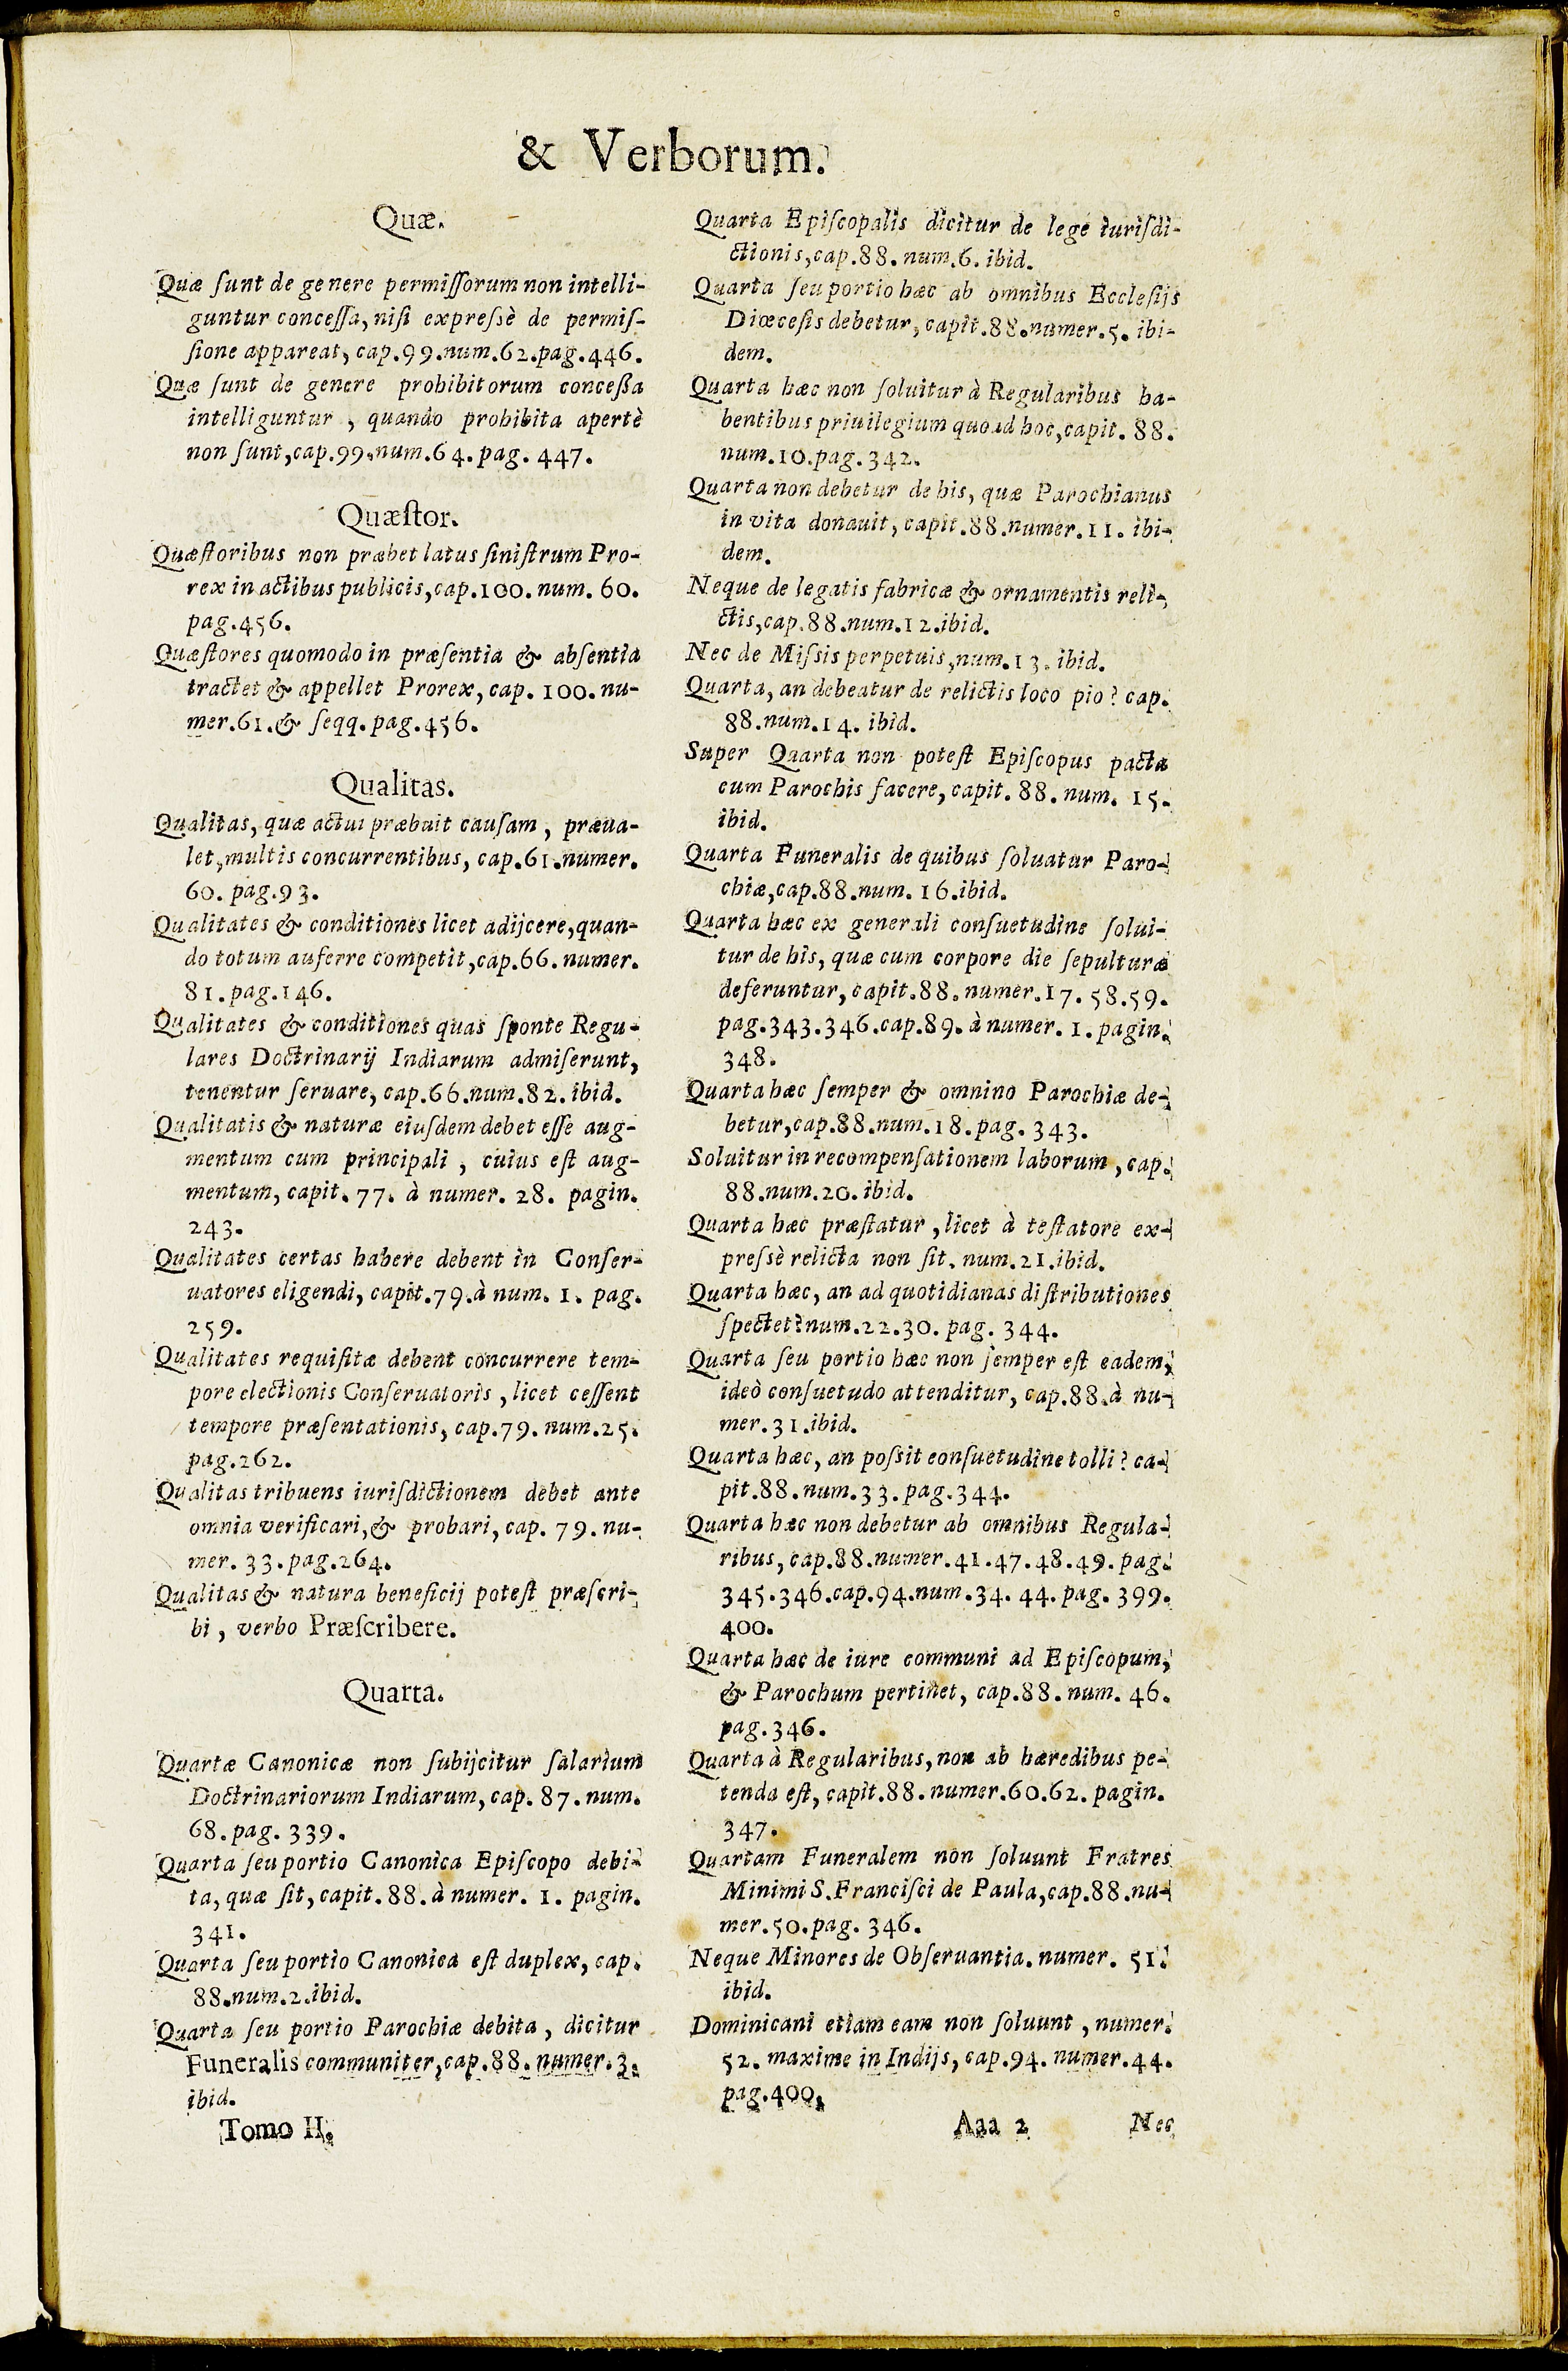 & Verborum.
Quæ.
Quæ ſunt de genere permiſſorum non intelli-
guntur conceſſa, niſi expreſsè de permiſ-
ſione appareat, cap.99.num.62.pag.446.
Quæ ſunt de genere prohibitorum conceßa
intelliguntur , quando prohibita apertè
non ſunt,cap.99.num.64.pag. 447.
Quæſtor.
Quæſtoribus non præbet latus ſiniſtrum Pro-
rex in actibus publicis,cap.100. num. 60.
pag.456.
Quæſtores quomodo in præſentia & abſentia
tractet & appellet Prorex, cap. 100. nu-
mer.61.& ſeqq.pag.456.
Qualitas.
Qualitas, quæ actui præbuit cauſam , præua-
let,multis concurrentibus, cap.61.numer.
60. pag.93.
Qualitates & conditiones licet adijcere,quan-
do totum auferre competit,cap.66. numer.
81.pag.146.
Qualitates & conditiones quas ſponte Regu-
lares Doctrinarij Indiarum admiſerunt,
tenentur ſeruare, cap.66.num.82. ibid.
Qualitatis & naturæ eiuſdem debet eſſe aug-
mentum cum principali , cuius eſt aug-
mentum, capit. 77. à numer. 28. pagin.
243.
Qualitates certas habere debent in Conſer-
uatores eligendi, capit.79.à num. 1. pag.
259.
Qualitates requiſitæ debent concurrere tem-
pore electionis Conſeruatoris , licet ceſſent
tempore præſentationis, cap.79. num.25.
pag.262.
Qualitas tribuens iuriſdictionem debet ante
omnia verificari,& probari, cap. 79. nu-
mer. 33.pag.264.
Qualitas & natura beneficij poteſt præſcri-
bi , verbo Præſcribere.
Quarta.
Quartæ Canonicæ non ſubijcitur ſalarium
Doctrinariorum Indiarum, cap. 87. num.
68.pag. 339.
Quarta ſeu portio Canonica Epiſcopo debi-
ta, quæ ſit, capit. 88. à numer. 1. pagin.
341.
Quarta ſeu portio Canonica eſt duplex, cap.
88.num.2.ibid.
Quarta ſeu portio Parochiæ debita , dicitur
Funeralis communiter,cap.88. numer.3.
ibid.
Tomo II.
Quarta Epiſcopalis dicitur de lege iuriſdi-
ctionis,cap.88. num.6. ibid.
Quarta ſeu portio hæc ab omnibus Eccleſijs
Diœceſis debetur, capit.88.numer.5. ibi-
dem.
Quarta hæc non ſoluitur à Regularibus ha-
bentibus priuilegium quoad hoc,capit. 88.
num.10.pag.342.
Quarta non debetur de his, quæ Parochianus
in vita donauit, capit.88.numer.11. ibi-
dem.
Neque de legatis fabricæ & ornamentis reli-
ctis,cap.88.num.12.ibid.
Nec de Miſsis perpetuis,num.13. ibid.
Quarta, an debeatur de relictis loco pio ? cap.
88.num.14. ibid.
Super Quarta non poteſt Epiſcopus pacta
cum Parochis facere, capit. 88. num. 15.
ibid.
Quarta Funeralis de quibus ſoluatur Paro-
chiæ,cap.88.num. 16.ibid.
Quarta hæc ex generali conſuetudine ſolui-
tur de his, quæ cum corpore die ſepulturæ
deferuntur, capit.88. numer.17. 58.59.
pag.343.346.cap.89. à numer. 1. pagin.
348.
Quarta hæc ſemper & omnino Parochiæ de-
betur,cap.88.num.18.pag. 343.
Soluitur in recompenſationem laborum , cap.
88.num.20. ibid.
Quarta hæc præſtatur , licet à teſtatore ex-
preſsè relicta non ſit. num.21.ibid.
Quarta hæc, an ad quotidianas diſtributiones
ſpectet? num.22.30. pag. 344.
Quarta ſeu portio hæc non ſemper eſt eadem,
ideò conſuetudo attenditur, cap.88.à nu-
mer.31.ibid.
Quarta hæc, an poſsit conſuetudine tolli ? ca-
pit.88.num.33.pag.344.
Quarta hæc non debetur ab omnibus Regula-
ribus, cap.88.numer.41.47.48.49. pag.
345.346.cap.94.num.34. 44. pag. 399.
400.
Quarta hæc de iure communi ad Epiſcopum,
& Parochum pertinet, cap.88. num. 46.
pag.346.
Quarta à Regularibus, non ab hæredibus pe-
tenda eſt, capit.88. numer.60.62. pagin.
347.
Quartam Funeralem non ſoluunt Fratres
Minimi S.Franciſci de Paula,cap.88.nu-
mer.50.pag. 346.
Neque Minores de Obſeruantia. numer. 51.
ibid.
Dominicani etiam eam non ſoluunt , numer.
52. maxime in Indijs, cap.94. numer.44.
pag.400.
Aaa 2 Nec